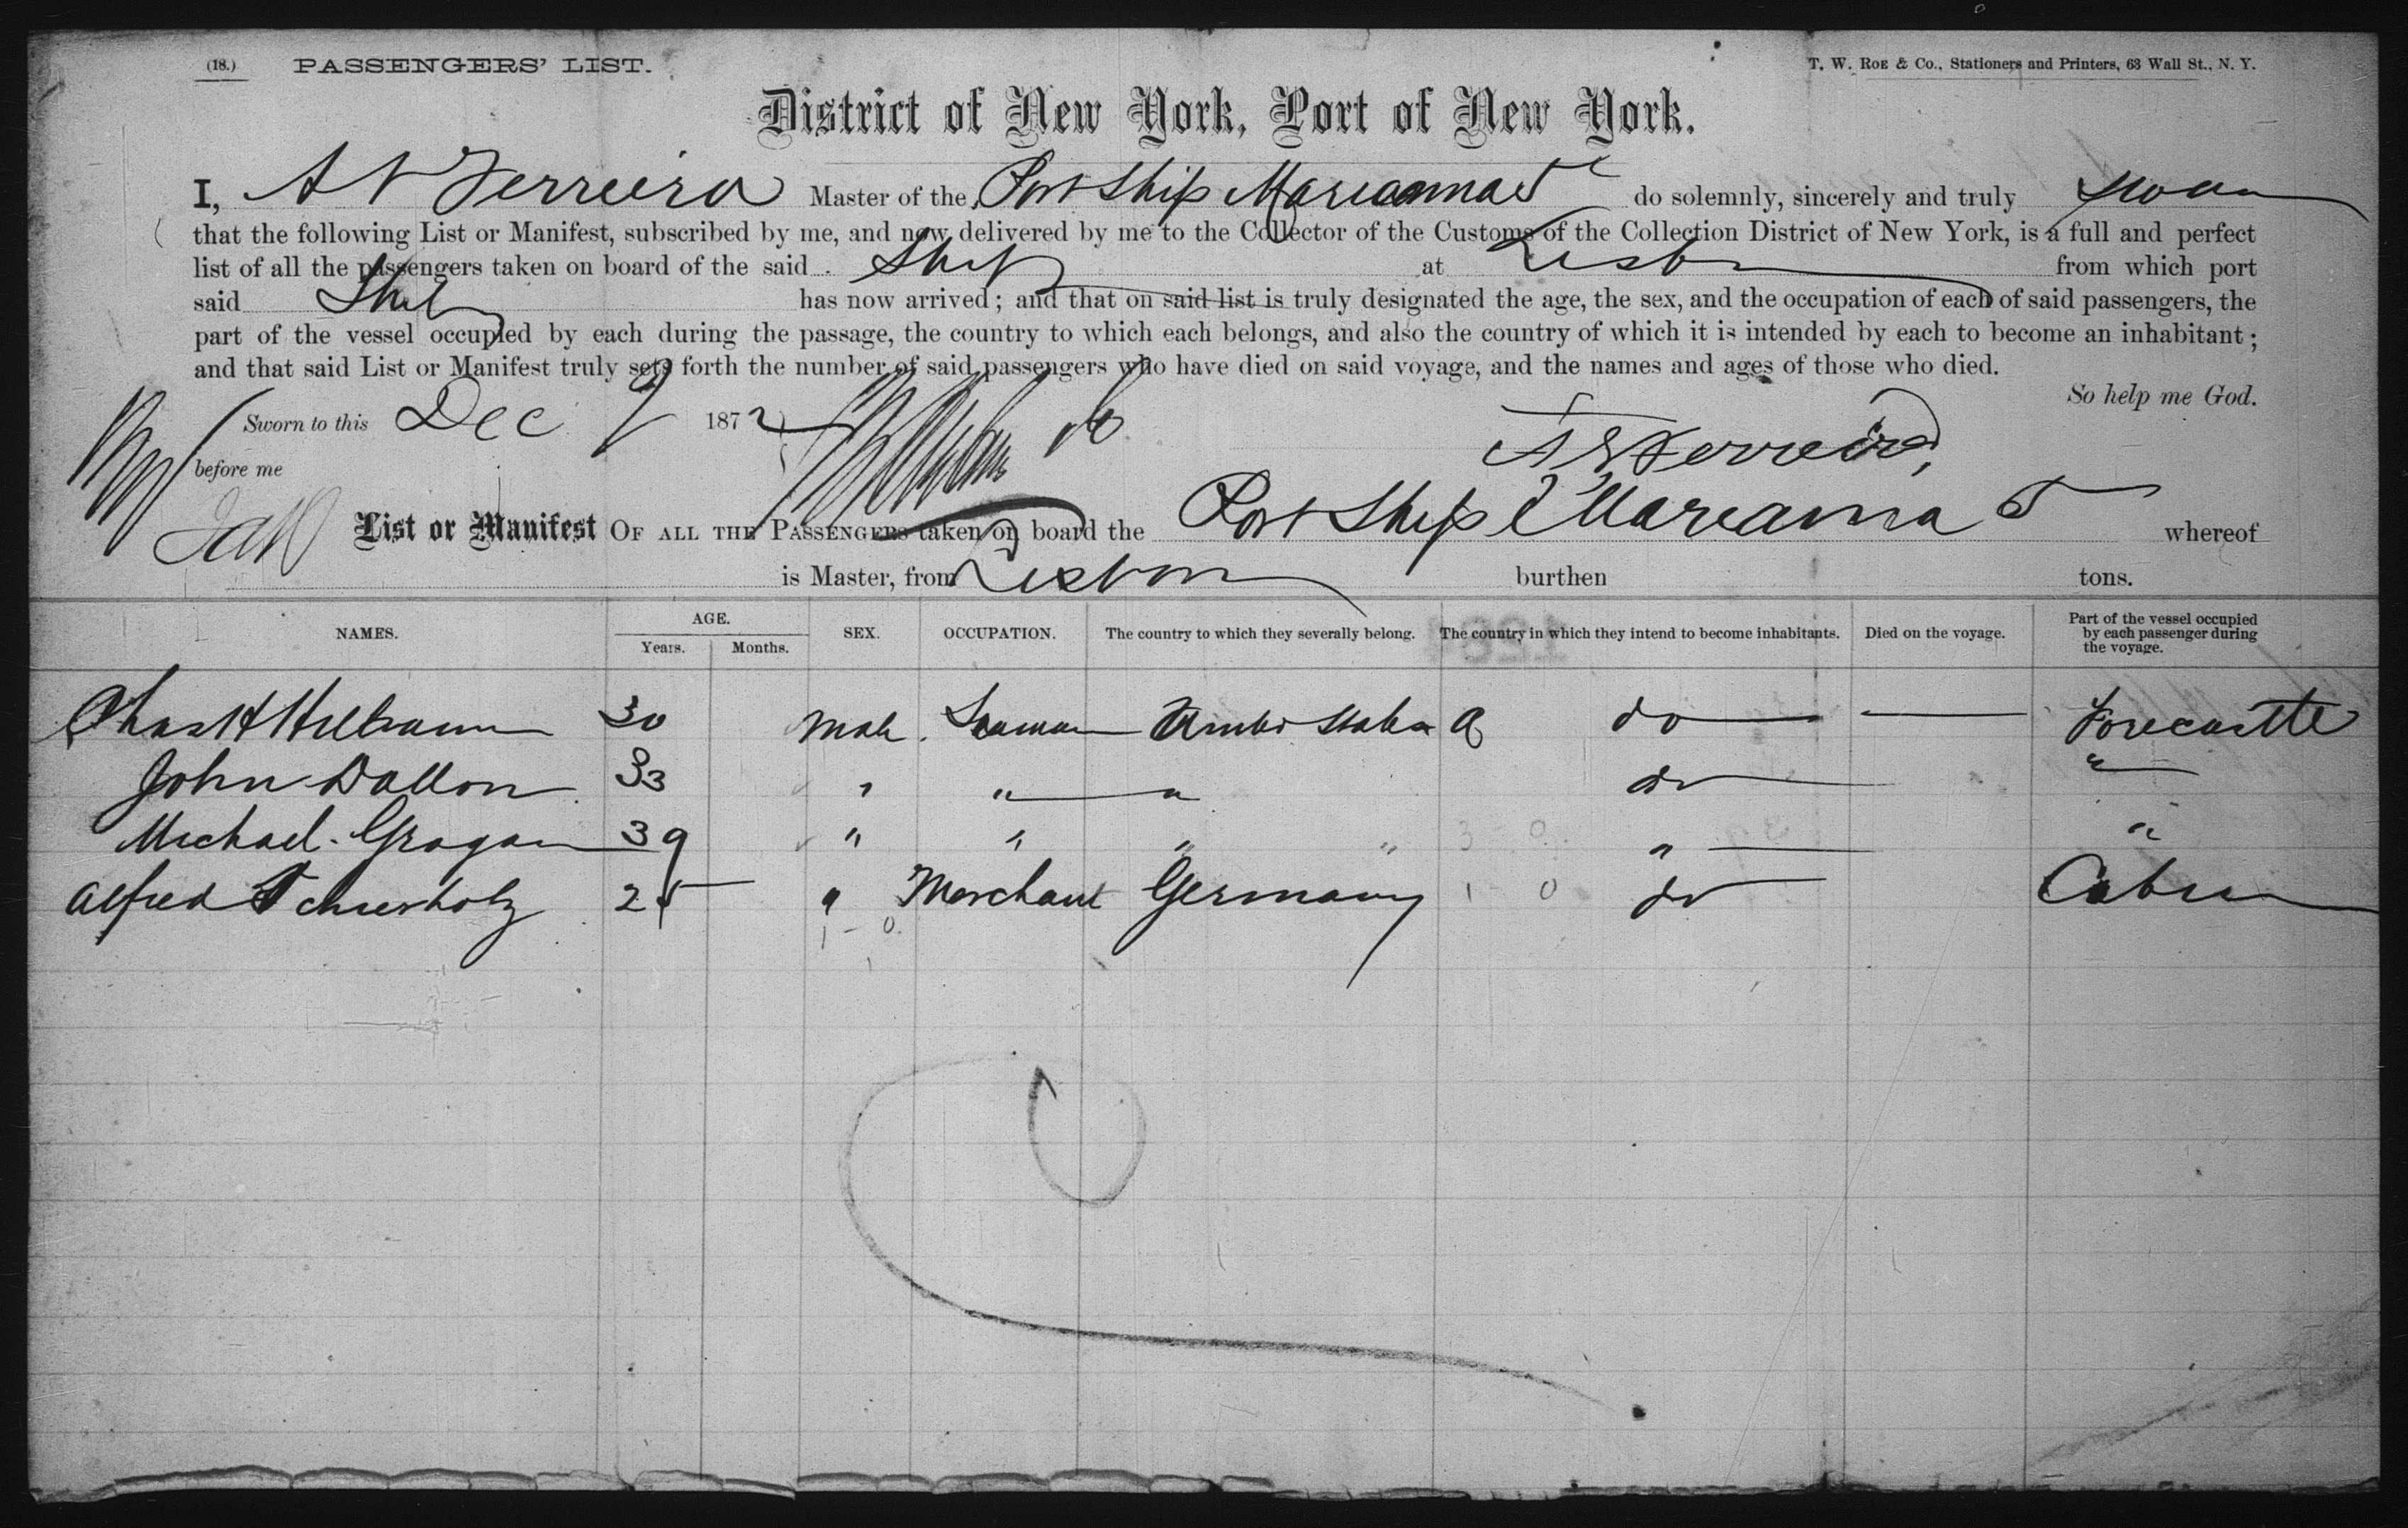 (18.) PASSENGERS' LIST.
T. W. Roe & Co., Stationers and Printers, 63 Wall St., N. Y.
District of New York, Port of New York.
I, A Ferreira Master of the Port Ship Marianna do solemnly, sincerely and truly swear
that the following List or Manifest, subscribed by me, and now delivered by me to the Collector of the Customs of the Collection District of New York, is a full and perfect
list of all the passengers taken on board of the said Ship at Lisbon from which port
said Ship has now arrived; and that on said list is truly designated the age, the sex, and the occupation of each of said passengers, the
part of the vessel occupied by each during the passage, the country to which each belongs, and also the country of which it is intended by each to become an inhabitant;
and that said List or Manifest truly sets forth the number of said passengers who have died on said voyage, and the names and ages of those who died.
So help me God.
Sworn to this Dec 9 1872
Ferreira
before me
List or Manifest OF ALL THE PASSENGERS taken on board the Port Ship Marianna whereof
is Master, from Lisbon burthen tons.
NAMES. AGE. Years. Months. SEX. OCCUPATION. The country to which they severally belong. The country in which they intend to become inhabitants. Died on the voyage. Part of the vessel occupied by each passenger during the voyage.
Chas H 30 Male Seaman United States do Forecastle
John Dallon 33 " " " do "
Michael Grogan 39 " " " " " "
Alfred 25 " Merchant Germany do Cabin